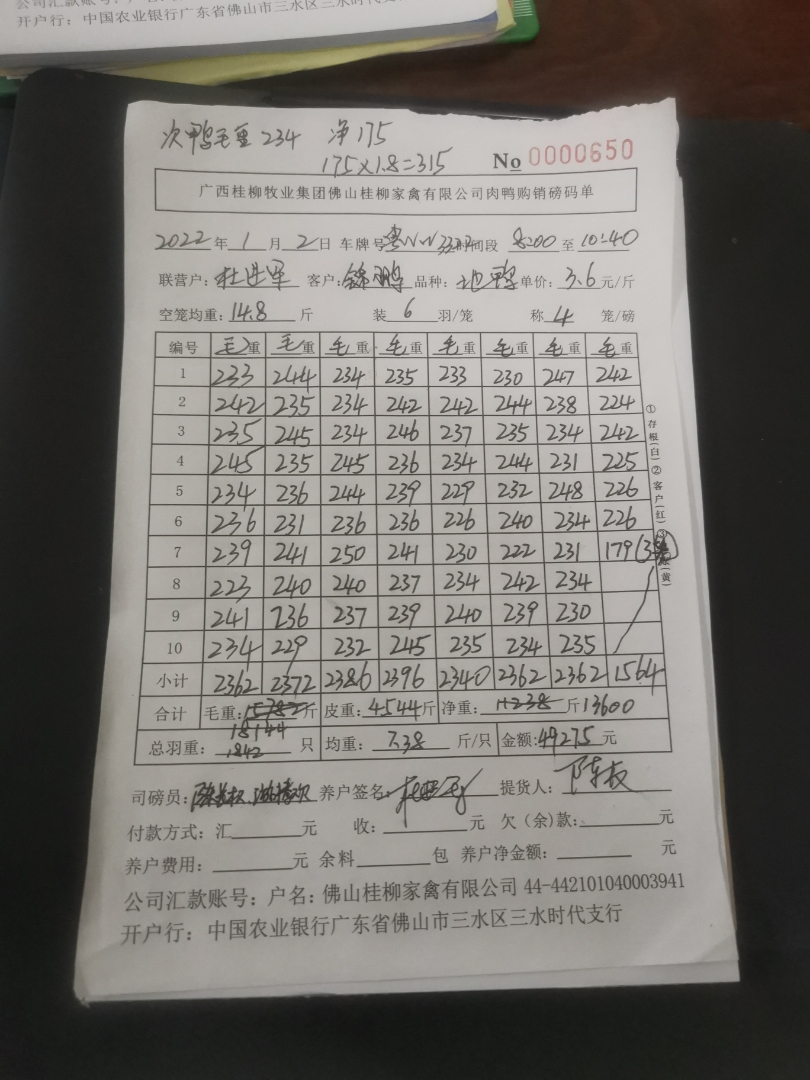 公司汇款账号：户名：
开户行：中国农业银行广东省佛山市三水区三水时代支
次鸭毛重234 净175
175×1.8=315
No 0000650
广西桂柳牧业集团佛山桂柳家禽有限公司肉鸭购销磅码单
2022年1月2日 车牌号 时间段 8:00至10:40
联营户：杜进军 客户：锦鹏 品种：土鸭 单价：3.6元/斤
空笼均重：14.8斤 装6羽/笼 称4笼/磅
编号 毛重 毛重 毛重 毛重 毛重 毛重 毛重 毛重
1 233 244 234 235 233 230 247 242
2 242 235 234 242 242 244 238 224
3 235 245 234 246 237 235 234 242
4 245 235 245 236 234 244 231 225
5 234 236 244 239 229 232 248 226
6 236 231 236 236 226 240 234 226
7 239 241 250 241 230 222 231 179
8 223 240 240 237 234 242 234
9 241 236 237 239 240 239 230
10 234 229 232 245 235 234 235
小计 2362 2372 2386 2396 2340 2362 2362 1564
合计 毛重：15782斤 皮重：4544斤 净重：11238斤 13600
18144
总羽重：1842只 均重：7.38斤/只 金额：49275元
①存根(白)②客户(红)③ (黄)
司磅员： 养户签名： 提货人：陈板
付款方式：汇 元 收： 元 欠（余）款： 元
养户费用： 元 余料 包 养户净金额： 元
公司汇款账号：户名：佛山桂柳家禽有限公司 44-442101040003941
开户行：中国农业银行广东省佛山市三水区三水时代支行